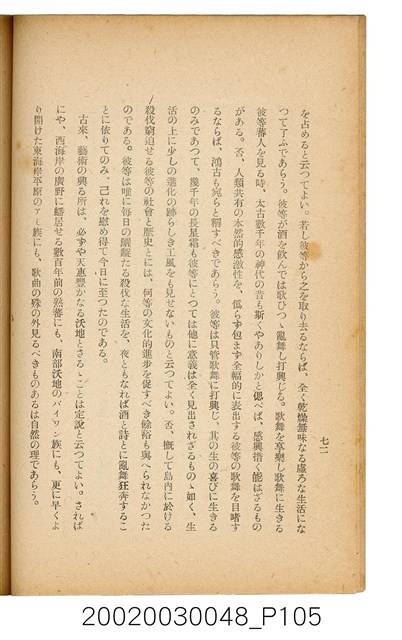 七二
を占めると云つてよい。若し彼等から之を取り去るならば、全く乾燥無味なる虚ろな生活にな
つて了ふであらう。彼等が酒を飲んでは歌ひつゝ亂舞し打興じる。歌舞を享樂し歌舞に生きる
彼等蕃人を見る時、太古數千年の神代の昔も斯くやありしかと偲べば、感興措く能はざるもの
がある。否、人類共有の本然的感激性を、僞らず包まず全幅的に表出する彼等の歌舞を目睹す
るならば、鴻古も宛らと稱すべきであらう。彼等は只管歌舞に打興じ、其の生の喜びに生きる
のみであつて、幾千年の長星霜も彼等にとつては他に意義は全く見出されざるものゝ如く、生
活の上に少しの進化の跡らしき工風をも見せないものと云つてよい。否、概して島內に於ける
殺伐窮迫せる彼等の社會と歷史とには、何等の文化的進步を促すべき餘裕も與へられなかつた
のである。彼等は唯に每日の齷齪たる殺伐な生活を、夜ともなれば酒と詩とに亂舞狂奔するこ
とに依りてのみ、己れを慰め得て今日に至つたのである。
古來、藝術の興る所は、必ずや天惠豐かなる沃地とさるゝことは定說と云つてよい。されば
にや、西海岸の廣野に蟠居せる數百年前の熟蕃にも、南部沃地のパイワン族にも、更に早くよ
り開けた東海岸平原のアミ族にも、歌曲の殊の外見るべきものあるは自然の理であらう。
20020030048_P105